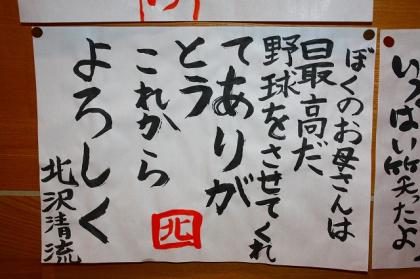 ぼくのお母さんは
最高だ
野球をさせてくれ
てありが
とう
これから
よろしく
北沢清流
北
いっぱい笑ったよ